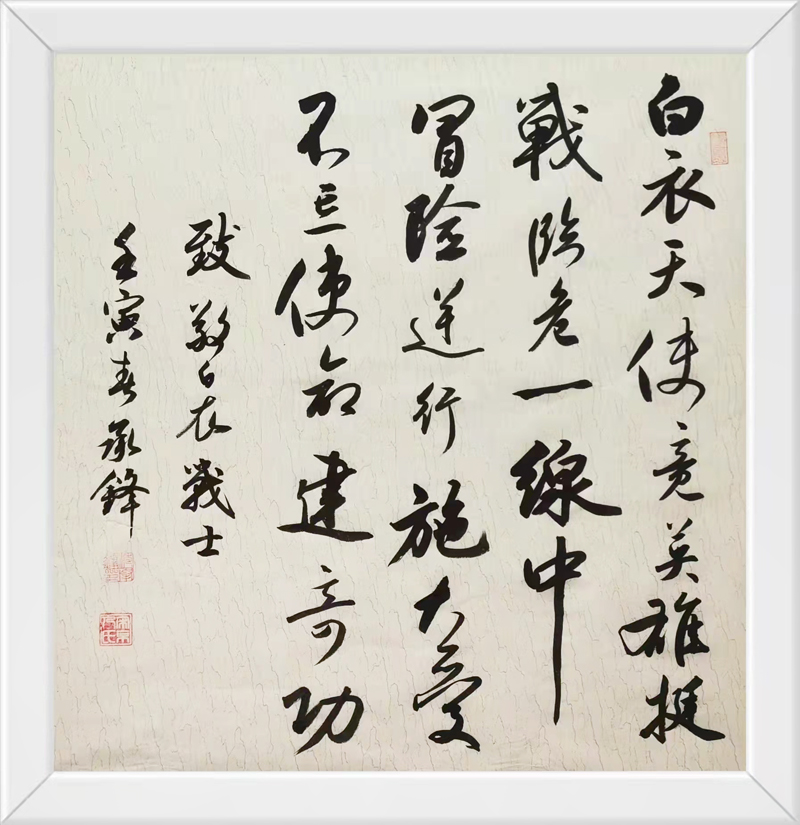 白衣天使竞英雄挺
戰臨危一線中
冒險逆行施大愛
不忘使命建奇功
致敬白衣戰士
壬寅春承鋒